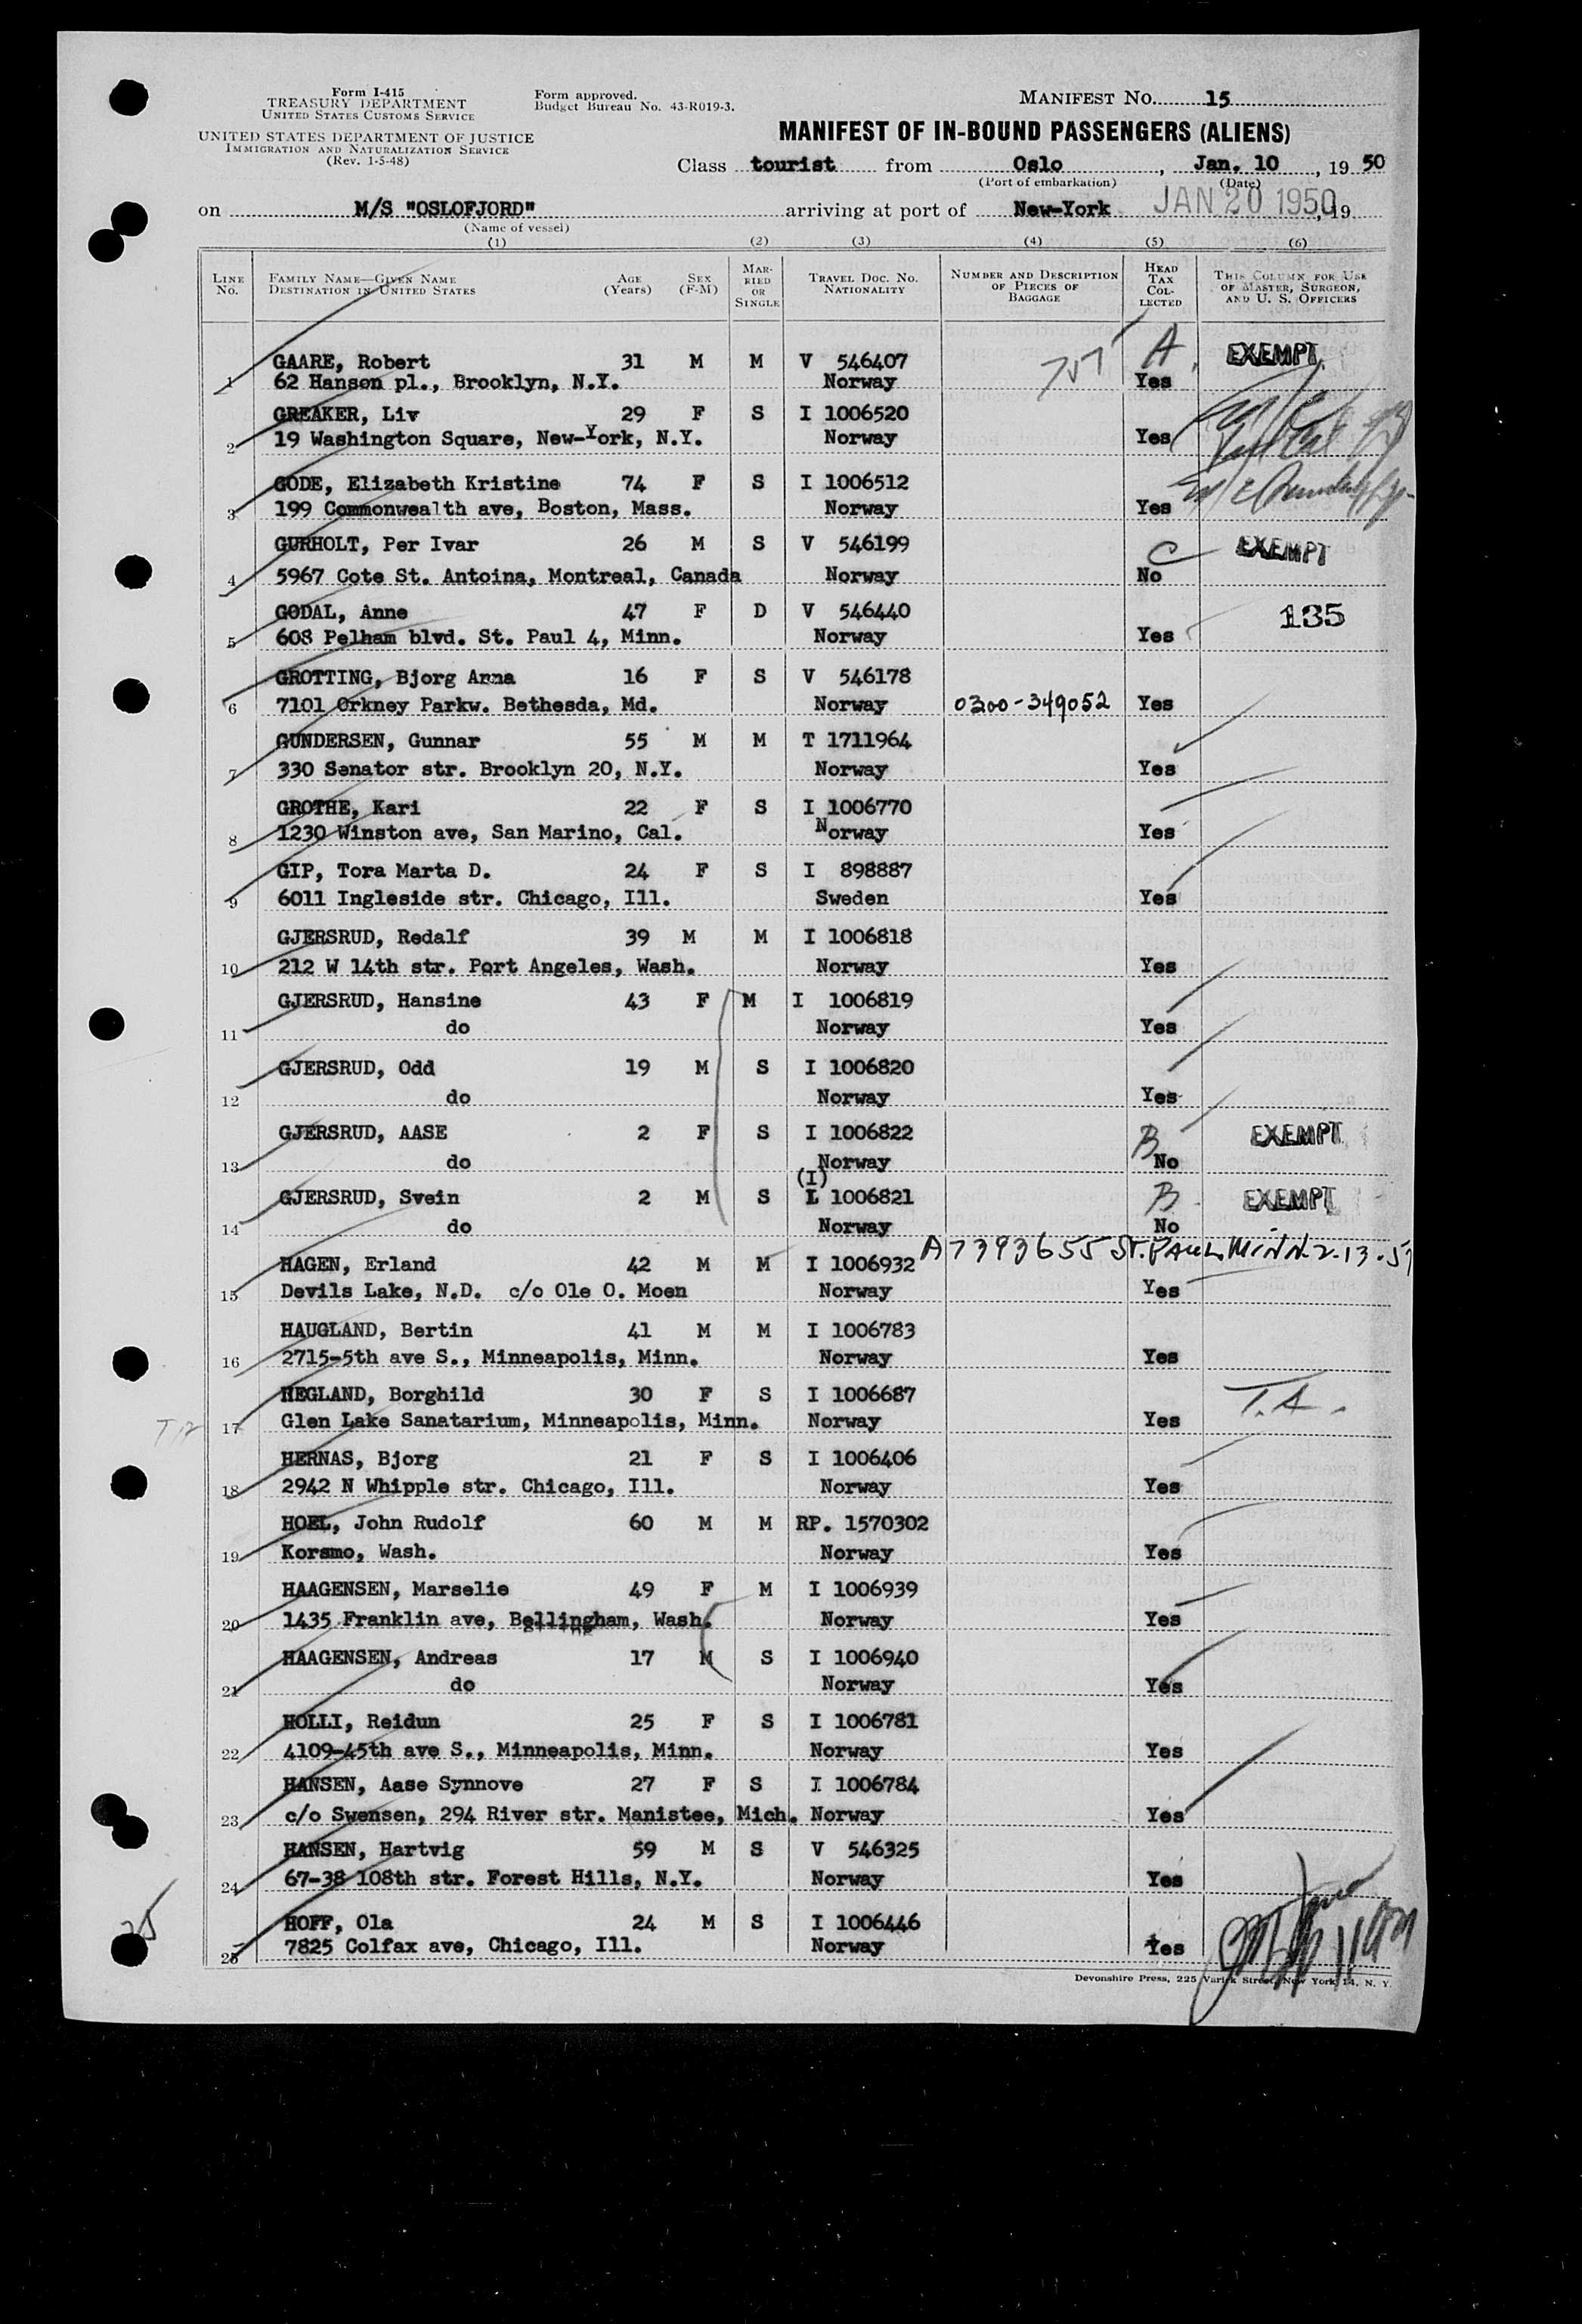 Form I-415
TREASURY DEPARTMENT
UNITED STATES CUSTOMS SERVICE
UNITED STATES DEPARTMENT OF JUSTICE
IMMIGRATION AND NATURALIZATION SERVICE
(Rev. 1-5-48)
Form approved.
Budget Bureau No. 43-R019-3.
MANIFEST NO. 15
MANIFEST OF IN-BOUND PASSENGERS (ALIENS)
Class tourist from Oslo, Jan. 10, 19 50
(Port of embarkation) (Date)
on M/S "OSLOFJORD" arriving at port of New-York JAN 20 1950, 19
(Name of vessel)
(1) (2) (3) (4) (5) (6)
LINE NO. FAMILY NAME—GIVEN NAME DESTINATION IN UNITED STATES AGE (Years) SEX (F-M) MARRIED OR SINGLE TRAVEL DOC. NO. NATIONALITY NUMBER AND DESCRIPTION OF PIECES OF BAGGAGE HEAD TAX COLLECTED THIS COLUMN FOR USE OF MASTER, SURGEON, AND U. S. OFFICERS
GAARE, Robert 31 M M V 546407 A EXEMPT
1 62 Hanson pl., Brooklyn, N.Y. Norway Yes
GREAKER, Liv 29 F S I 1006520
2 19 Washington Square, New-York, N.Y. Norway Yes
GODE, Elizabeth Kristine 74 F S I 1006512
3 199 Commonwealth ave, Boston, Mass. Norway Yes
GURHOLT, Per Ivar 26 M S V 546199 C EXEMPT
4 5967 Cote St. Antoina, Montreal, Canada Norway No
GODAL, Anne 47 F D V 546440 135
5 608 Pelham blvd. St. Paul 4, Minn. Norway Yes
GROTTING, Bjorg Anna 16 F S V 546178
6 7101 Orkney Parkw. Bethesda, Md. Norway 0300-349052 Yes
GUNDERSEN, Gunnar 55 M M T 1711964
7 330 Senator str. Brooklyn 20, N.Y. Norway Yes
GROTHE, Kari 22 F S I 1006770
8 1230 Winston ave, San Marino, Cal. Norway Yes
GIP, Tora Marta D. 24 F S I 898887
9 6011 Ingleside str. Chicago, Ill. Sweden Yes
GJERSRUD, Redalf 39 M M I 1006818
10 212 W 14th str. Port Angeles, Wash. Norway Yes
GJERSRUD, Hansine 43 F M I 1006819
11 do Norway Yes
GJERSRUD, Odd 19 M S I 1006820
12 do Norway Yes
GJERSRUD, AASE 2 F S I 1006822 B EXEMPT
13 do Norway No
(I)
GJERSRUD, Svein 2 M S L 1006821 B EXEMPT
14 do Norway No
HAGEN, Erland 42 M M I 1006932 A7393655 ST. PAUL MINN. 2-13-51
15 Devils Lake, N.D. c/o Ole O. Moen Norway Yes
HAUGLAND, Bertin 41 M M I 1006783
16 2715-5th ave S., Minneapolis, Minn. Norway Yes
HEGLAND, Borghild 30 F S I 1006687 T.A.
17 Glen Lake Sanatarium, Minneapolis, Minn. Norway Yes
HERNAS, Bjorg 21 F S I 1006406
18 2942 N Whipple str. Chicago, Ill. Norway Yes
HOEL, John Rudolf 60 M M RP. 1570302
19 Korsmo, Wash. Norway Yes
HAAGENSEN, Marselie 49 F M I 1006939
20 1435 Franklin ave, Bellingham, Wash. Norway Yes
HAAGENSEN, Andreas 17 M S I 1006940
21 do Norway Yes
HOLLI, Reidun 25 F S I 1006781
22 4109-45th ave S., Minneapolis, Minn. Norway Yes
HANSEN, Aase Synnove 27 F S I 1006784
23 c/o Swensen, 294 River str. Manistee, Mich. Norway Yes
HANSEN, Hartvig 59 M S V 546325
24 67-38 108th str. Forest Hills, N.Y. Norway Yes
HOFF, Ola 24 M S I 1006446
25 7825 Colfax ave, Chicago, Ill. Norway Yes
25
Devonshire Press, 225 Varick Street, New York 14, N. Y.